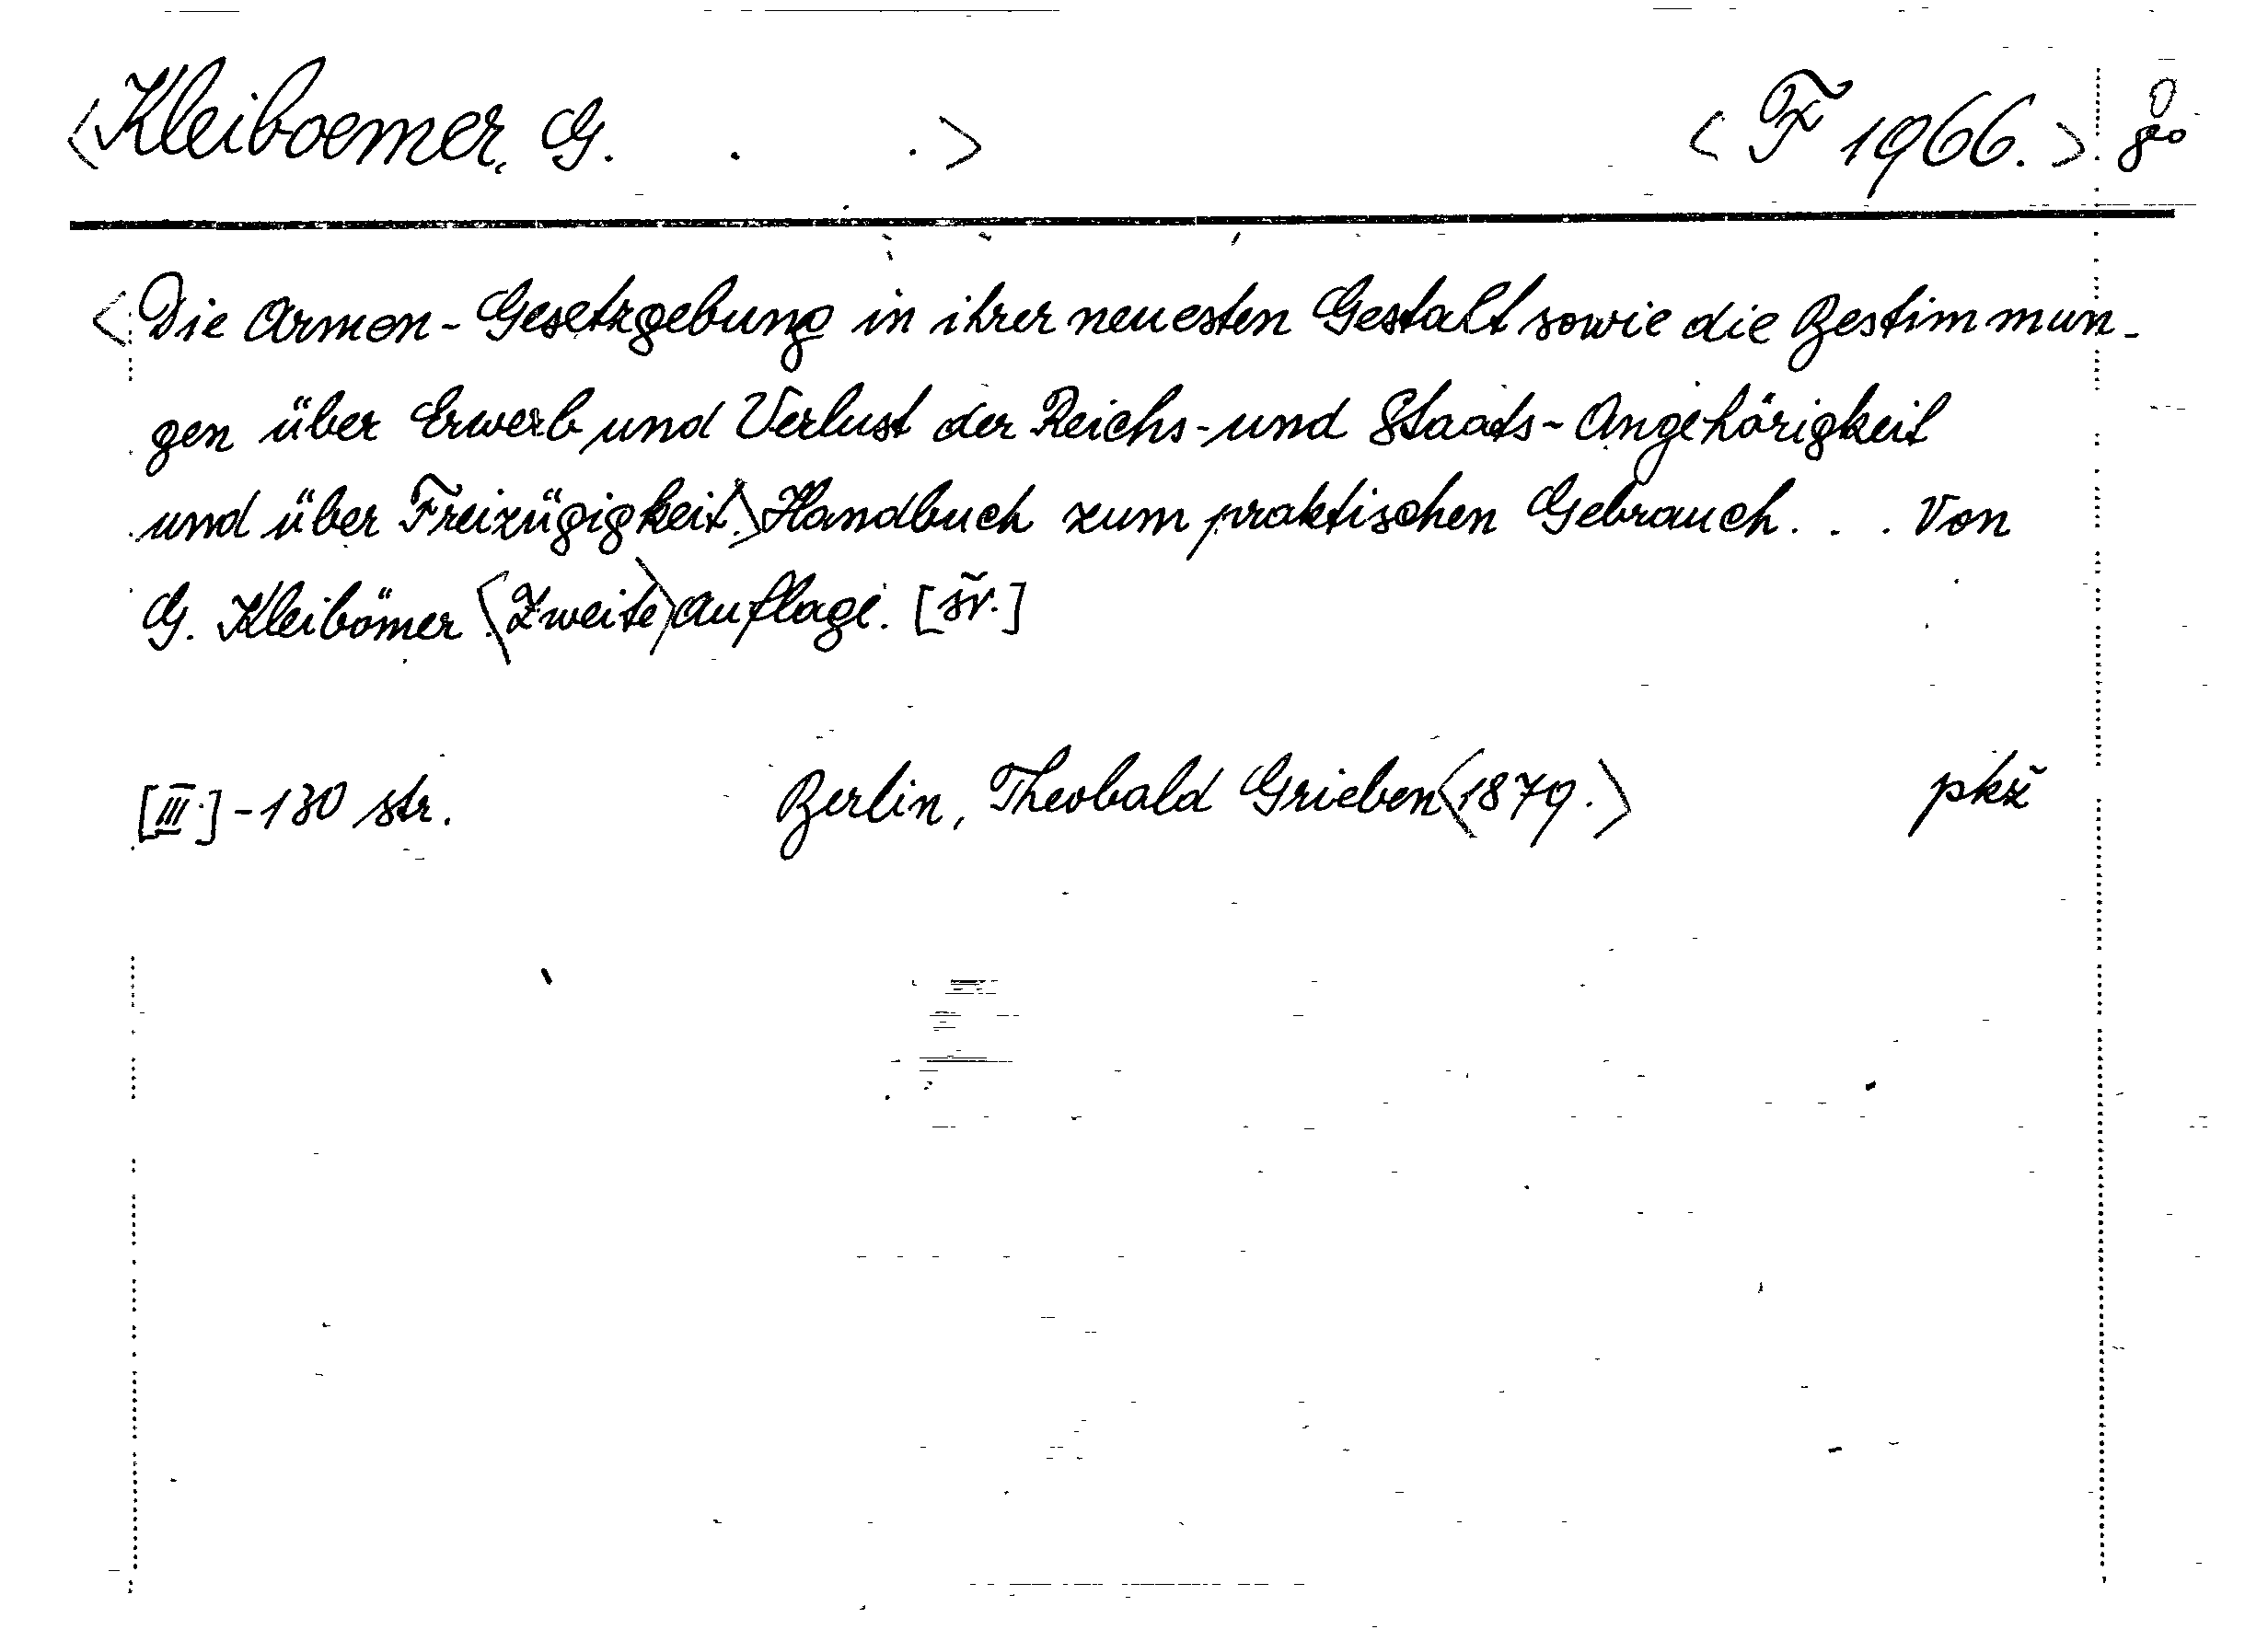 <Kleiboemer, G. . .> <F 1966.> 8°
<Die Armen-Gesetzgebung in ihrer neuesten Gestalt sowie die Bestimmun-
gen über Erwerb und Verlust der Reichs- und Staats-Angehörigkeit
und über Freizügigkeit.> Handbuch zum praktischen Gebrauch... Von
G. Kleibömer. <Zweite> Auflage. [šv.]
[III.]-130 str. Berlin, Theobald Grieben <1879.> pkž